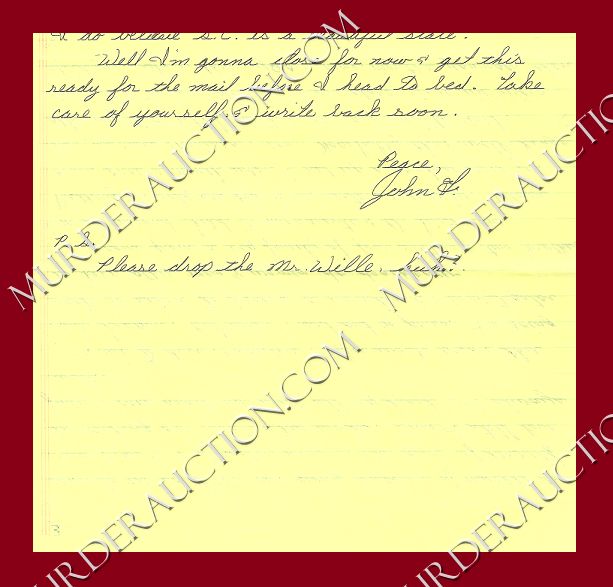 I do believe S.C. is a beautiful state.
Well I'm gonna close for now & get this
ready for the mail before I head to bed. Take
care of yourself & write back soon.
Peace,
John F.
P.S.
Please drop the Mr. Wille,
MURDERAUCTION.COM
MURDERAUCTION.COM
MURDERAUCTION.COM
MURDERAUCTION.COM